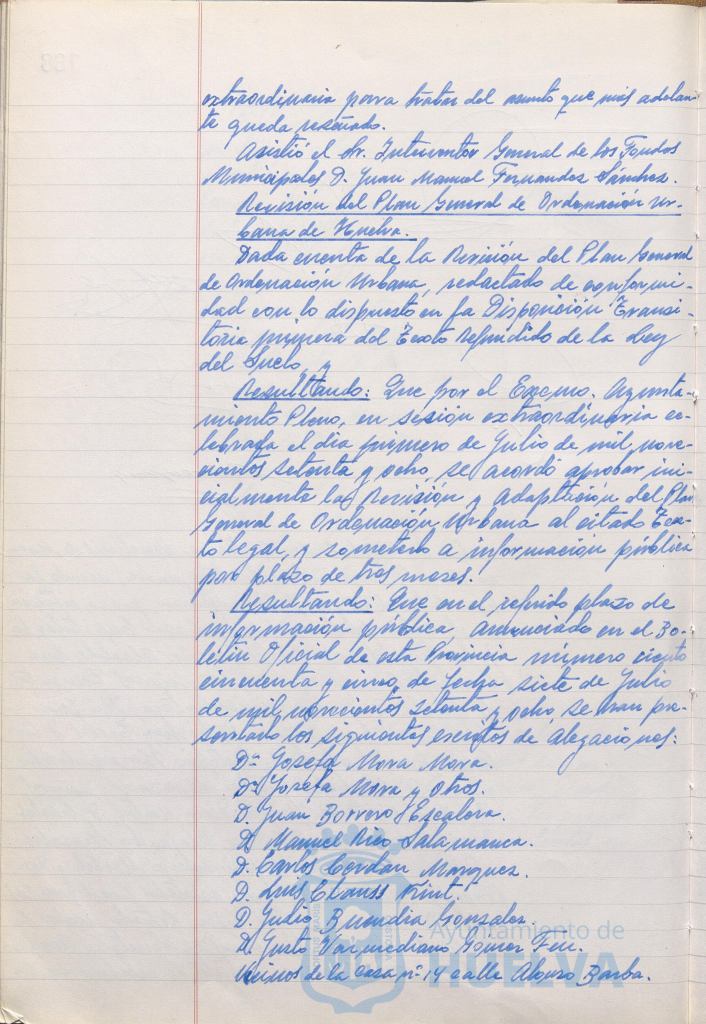 extraordinaria para tratar del asunto que más adelan-
te queda reseñado.
Asistió el Sr. Interventor General de los Fondos
Municipales D. Juan Manuel Fernandez Sánchez.
Revisión del Plan General de Ordenación Ur-
bana de Huelva.
Dada cuenta de la Revisión del Plan General
de Ordenación Urbana, redactado de conformi-
dad con lo dispuesto en la Disposición Transi-
toria primera del Texto Refundido de la Ley
del Suelo, y
Resultando: Que por el Excmo. Ayunta-
miento Pleno, en sesión extraordinaria ce-
lebrada el día primero de Julio de mil nove-
cientos setenta y ocho, se acordó aprobar ini-
cialmente la Revisión y adaptación del Plan
General de Ordenación Urbana al citado Tex-
to legal, y someterlo a información pública
por plazo de tres meses.
Resultando: Que en el referido plazo de
información pública, anunciado en el Bo-
letín Oficial de esta Provincia número ciento
cincuenta y cinco, de fecha siete de Julio
de mil novecientos setenta y ocho, se han pre-
sentado los siguientes escritos de alegaciones:
Dª Josefa Mora Mora.
Dª Josefa Mora y Otros.
D. Juan Borrero Escalera.
D. Manuel Rico Salamanca.
D. Carlos Cerdan Marquez.
D. Luis Clauss
D. Julio Buendia Gonzalez.
D. Justo
Vecinos de la casa nº 14 calle Alonso Barba.
Ayuntamiento de
HUELVA